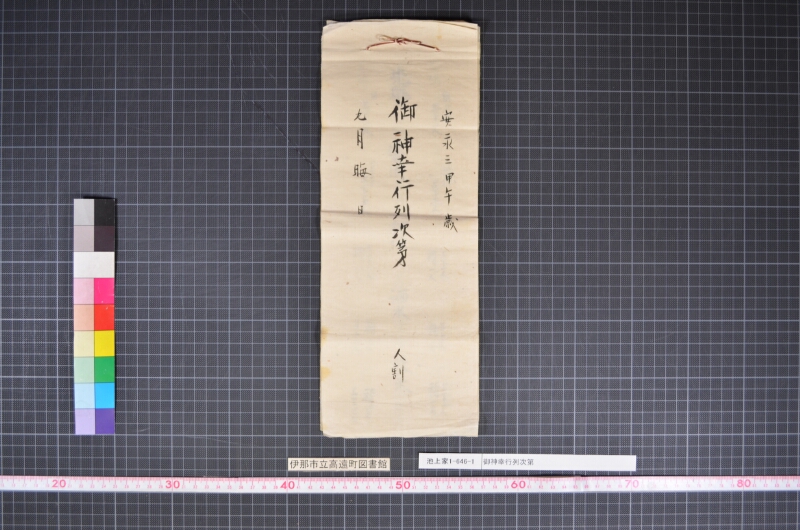 安永三甲午歳
御神幸行列次第
九月晦日
人割
伊那市立高遠町図書館
池上家1-646-1 御神幸行列次第
20 30 40 50 60 70 80